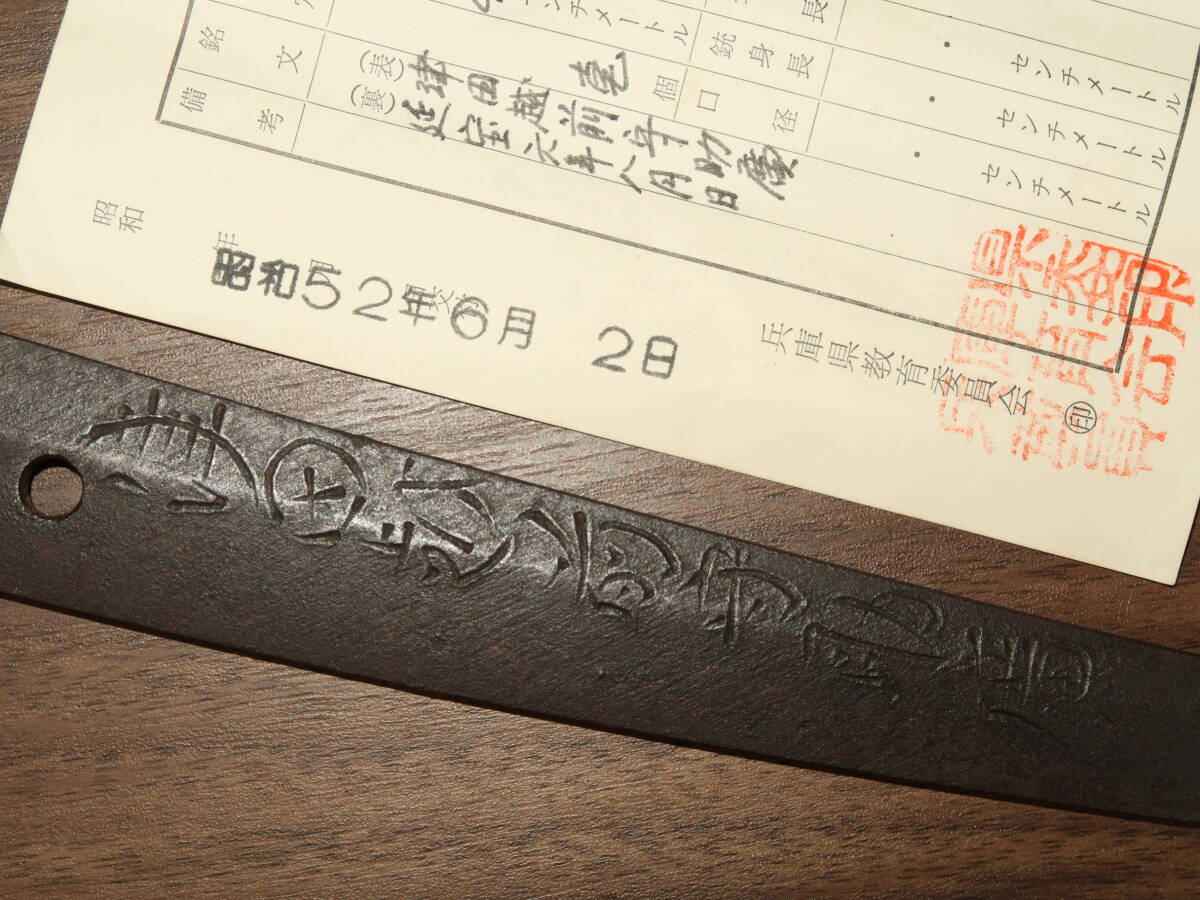 センチメートル
長
センチメートル
銃身長
・センチメートル
壱個
口径
・センチメートル
銘文
(表)津田越前守助廣
(裏)延宝六年八月日
・センチメートル
備考
昭和 年
昭和52年6月 2日
兵庫県教育委員会
印
津田越前守助廣